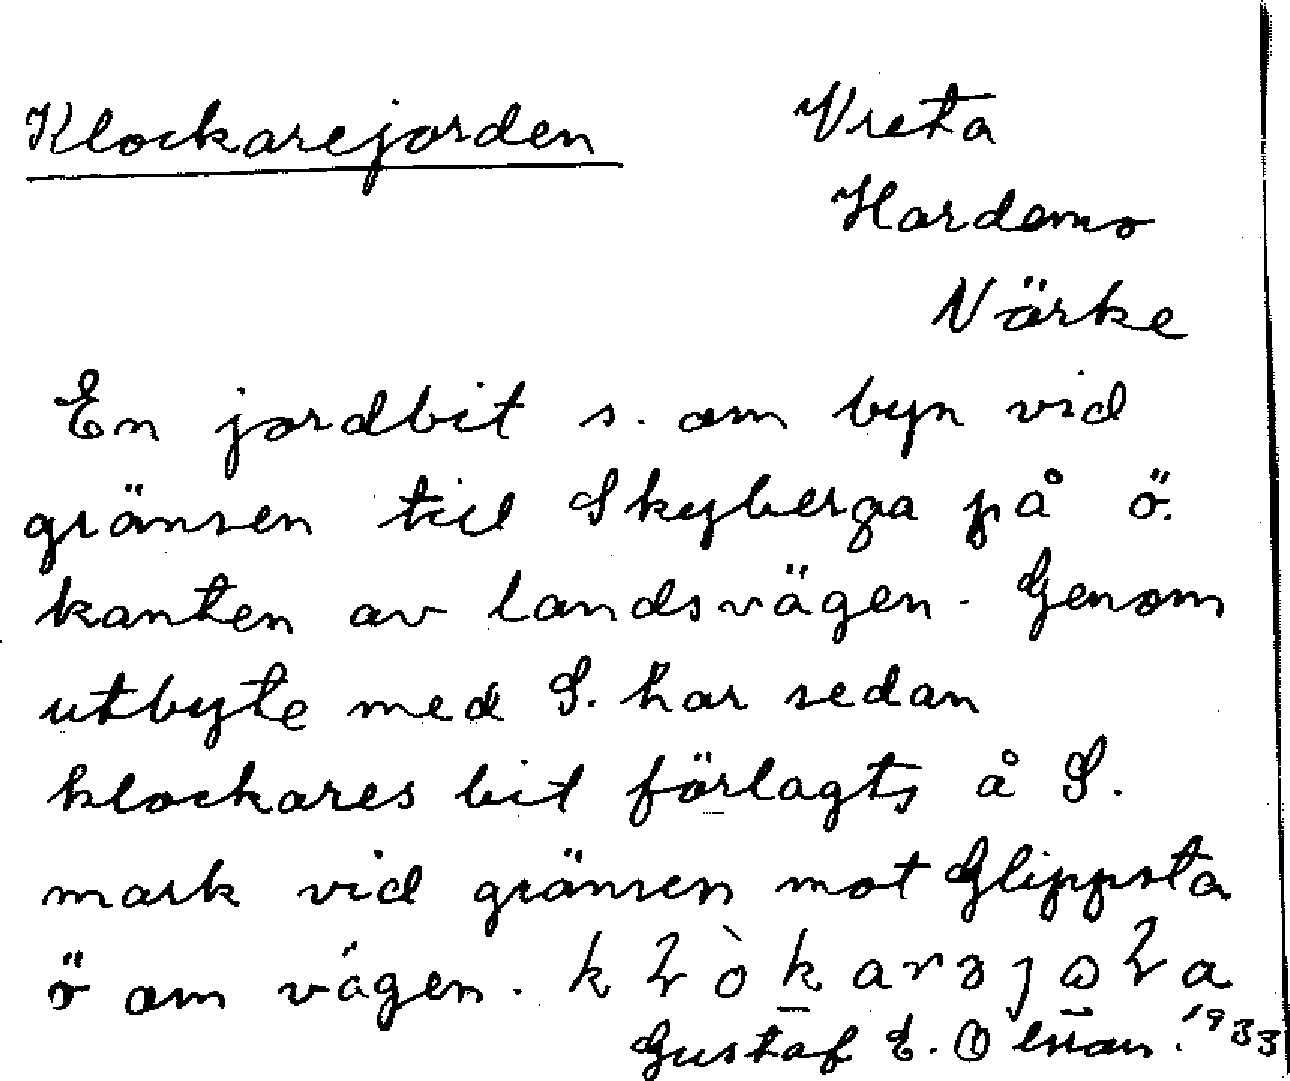 Klockarejorden
Vreta
Hardemo
Närke
En jordbit s. om byn vid
gränsen till Skyberga på ö.
kanten av landsvägen. Genom
utbyte med S. har sedan
klockares bit förlagts å S.
mark vid gränsen mot Glippsta
ö om vägen.
Gustaf E. 1933